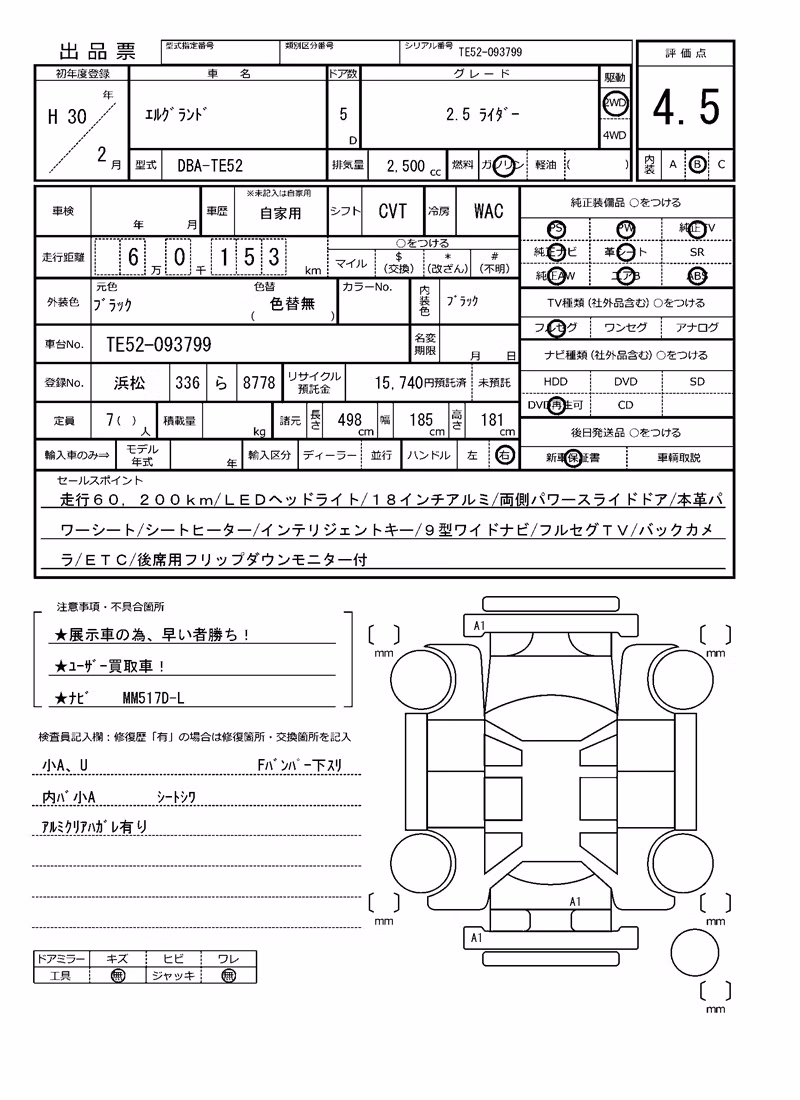 出品票 型式指定番号 類別区分番号 シリアル番号 TE52-093799 評価点
初年度登録 車名 ドア数 グレード 駆動
H 30 年 2 月 エルグランド 5 D 2.5 ライダー 2WD 4WD 4.5
型式 DBA-TE52 排気量 2,500 cc 燃料 ガソリン 軽油 ( ) 内装 A B C
車検 年 月 車歴 ※未記入は自家用 自家用 シフト CVT 冷房 WAC 純正装備品 ○をつける
PS PW 純正TV
走行距離 6 万 0 千 1 5 3 km ○をつける
マイル $ (交換) * (改ざん) # (不明)
純正ナビ 革シート SR
純正AW エアB ABS
外装色 元色 ブラック 色替 ( 色替無 ) カラーNo. 内装色 ブラック
TV種類 (社外品含む) ○をつける
フルセグ ワンセグ アナログ
車台No. TE52-093799 名変期限 月 日
ナビ種類 (社外品含む) ○をつける
登録No. 浜松 336 ら 8778 リサイクル預託金 15,740円預託済 未預託
HDD DVD SD
DVD再生可 CD
定員 7( ) 人 積載量 kg 諸元 長さ 498 cm 幅 185 cm 高さ 181 cm
後日発送品 ○をつける
輸入車のみ⇒ モデル年式 年 輸入区分 ディーラー 並行 ハンドル 左 右
新車保証書 車輌取説
セールスポイント
走行60，200km/LEDヘッドライト/18インチアルミ/両側パワースライドドア/本革パ
ワーシート/シートヒーター/インテリジェントキー/9型ワイドナビ/フルセグTV/バックカメ
ラ/ETC/後席用フリップダウンモニター付
注意事項・不具合箇所
★展示車の為、早い者勝ち！
★ユーザー買取車！
★ナビ MM517D-L
検査員記入欄：修復歴「有」の場合は修復箇所・交換箇所を記入
小A、U Fバンパー下スリ
内バ小A シートシワ
アルミクリアハガレ有り
ドアミラー キズ ヒビ ワレ
工具 無 ジャッキ 無
A1
mm
mm
A1
mm
mm
A1
mm